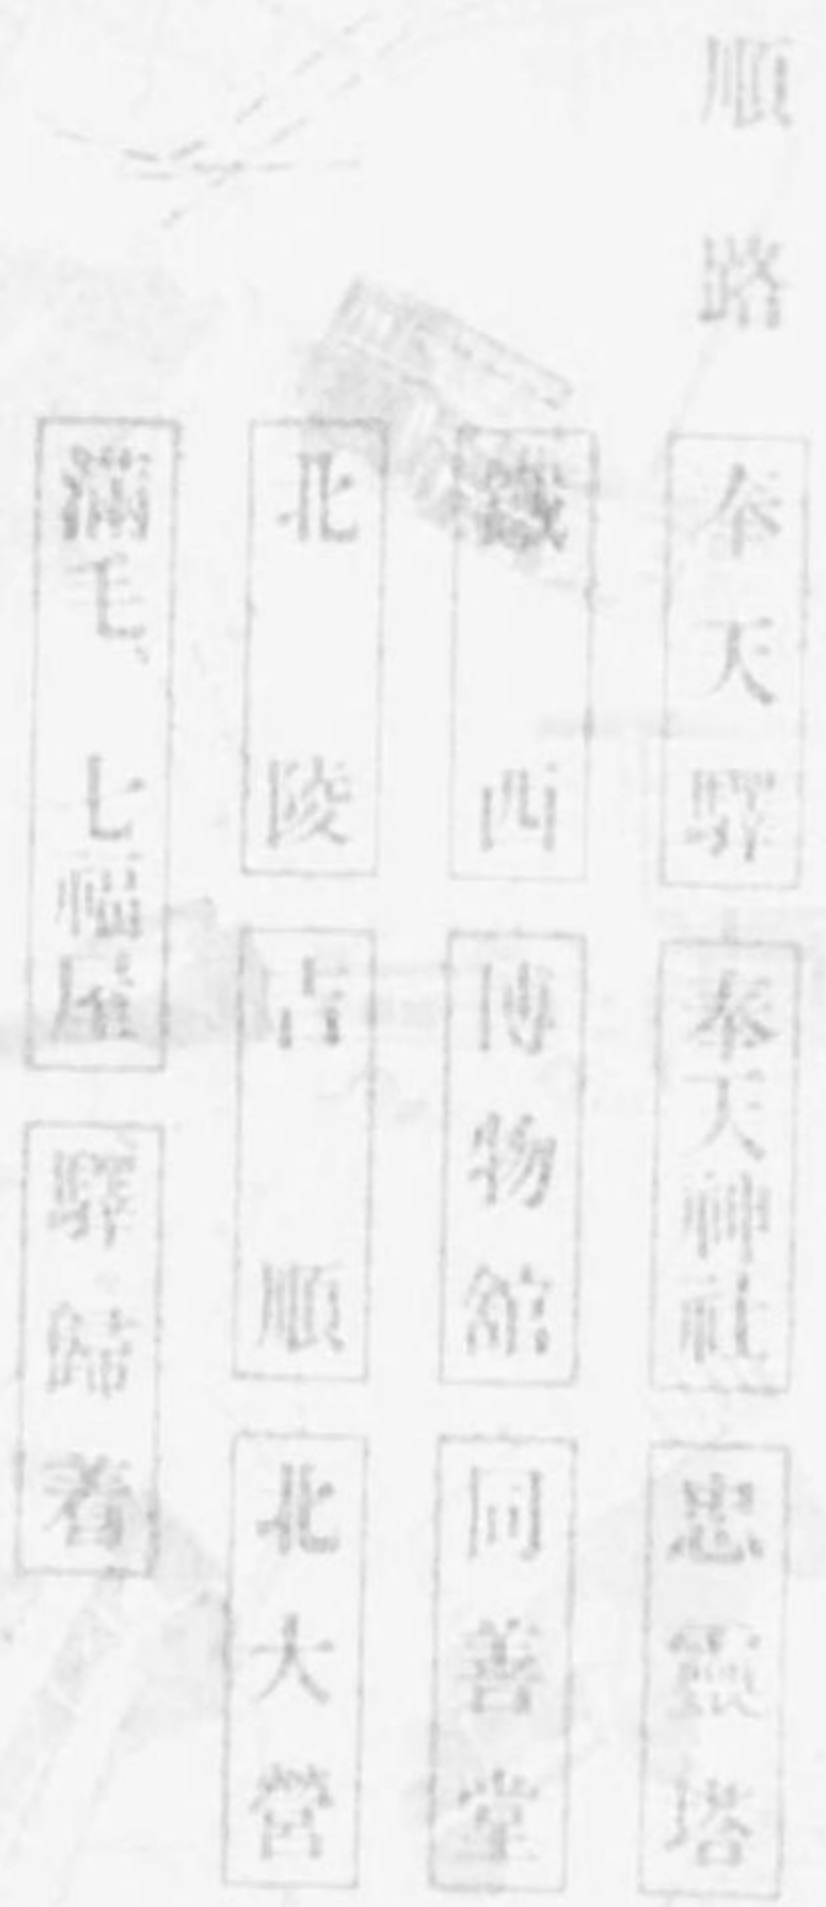 順路
奉天驛
奉天神社
忠靈塔
鐵西
博物館
同善堂
北陵
吉順
北大營
滿毛、七福屋
驛歸着